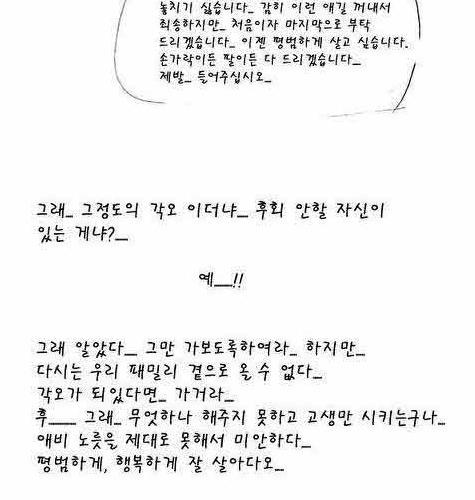 놓치기 싫습니다_ 감히 이런 얘길 꺼내서
죄송하지만_ 처음이자 마지막으로 부탁
드리겠습니다_ 이젠 평범하게 살고 싶습니다.
손가락이든 팔이든 다 드리겠습니다_
제발_ 들어주십시오_
그래_ 그정도의 각오 이더냐_ 후회 안할 자신이
있는 게냐?_
예_!!
그래 알았다_ 그만 가보도록하여라_ 하지만_
다시는 우리 패밀리 곁으로 올 수 없다_
각오가 되있다면_ 가거라_
후_ 그래_ 무엇하나 해주지 못하고 고생만 시키는구나_
애비 노릇을 제대로 못해서 미안하다_
평범하게, 행복하게 잘 살아다오_